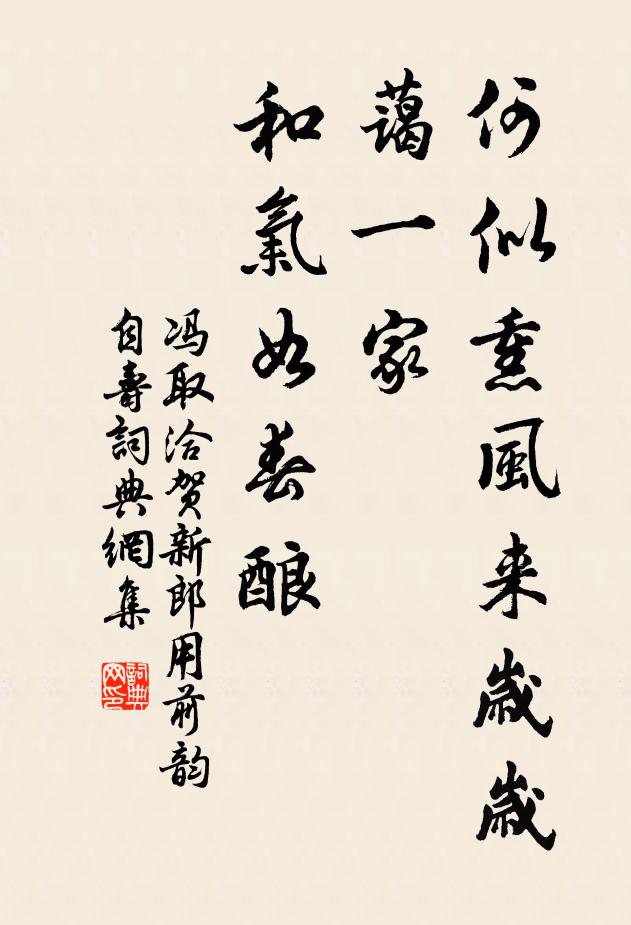 何似熏風来歲歲
藹一家
和氣如春酿
冯取洽贺新郎用前韵
自壽詞典網集
詞典網印